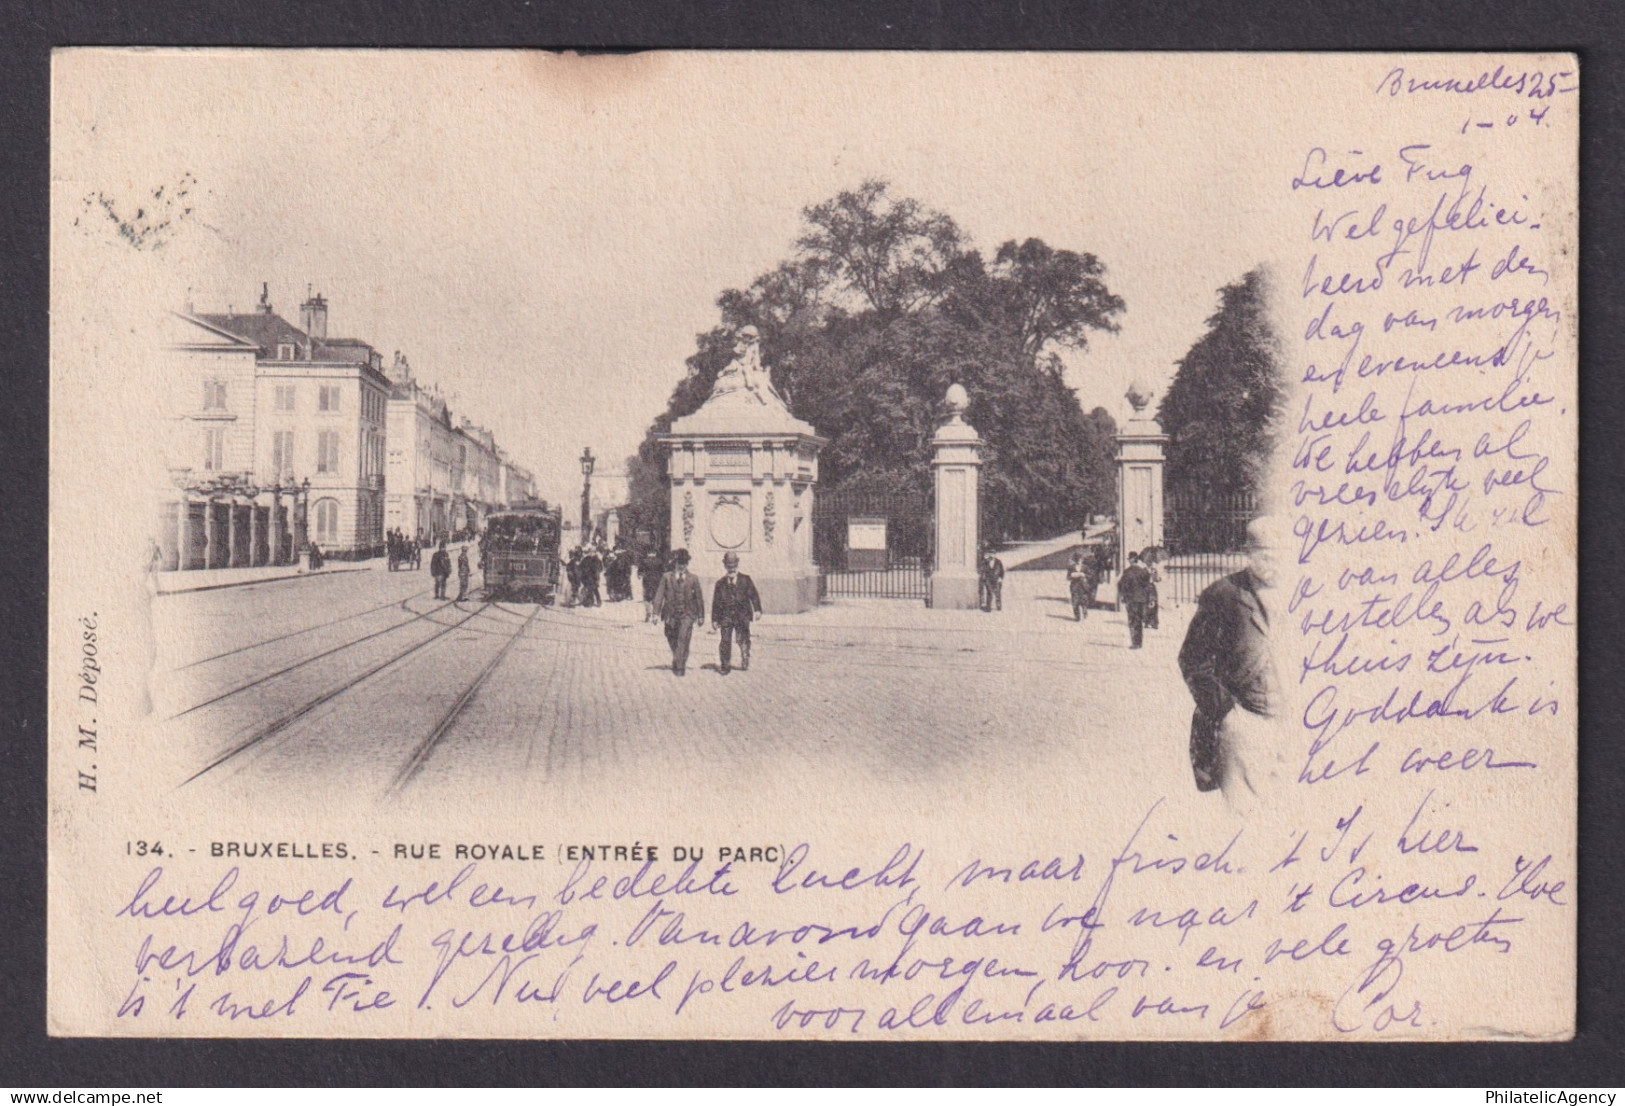 Bruxelles 25-
1-04.
Liève Fug,
Wel gefelici-
teerd met den
dag van morgen
en eveneens je
heele familie.
We hebben al
vreeselijk veel
gezien. Ik zal
je van alles
vertellen als we
thuis zijn.
Goddank is
het weer
H. M. Déposé.
134. - BRUXELLES. - RUE ROYALE (ENTRÉE DU PARC).
heel goed, wel een bedekte lucht, maar frisch. 't Is hier
verbazend gezellig. Vanavond gaan we naar 't Circus. Hoe
is 't met Fie? Nu, veel plezier morgen, hoor. en vele groeten
voor allemaal van je Cor.
PhilatelicAgency